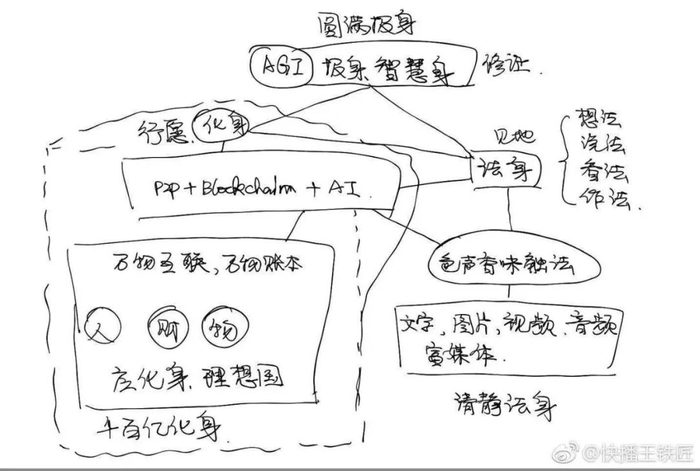 圆满报身
AGI 报身.智慧身 修证.
行愿. 化身
见地
法身
想法
说法
看法
作法.
P2P+Blockchain+AI.
万物互联,万物账本
人 财 物
应化身.理想国
千百亿化身.
色声香味触法
文字,图片,视频.音频
富媒体.
清静法身
@快播王铁匠